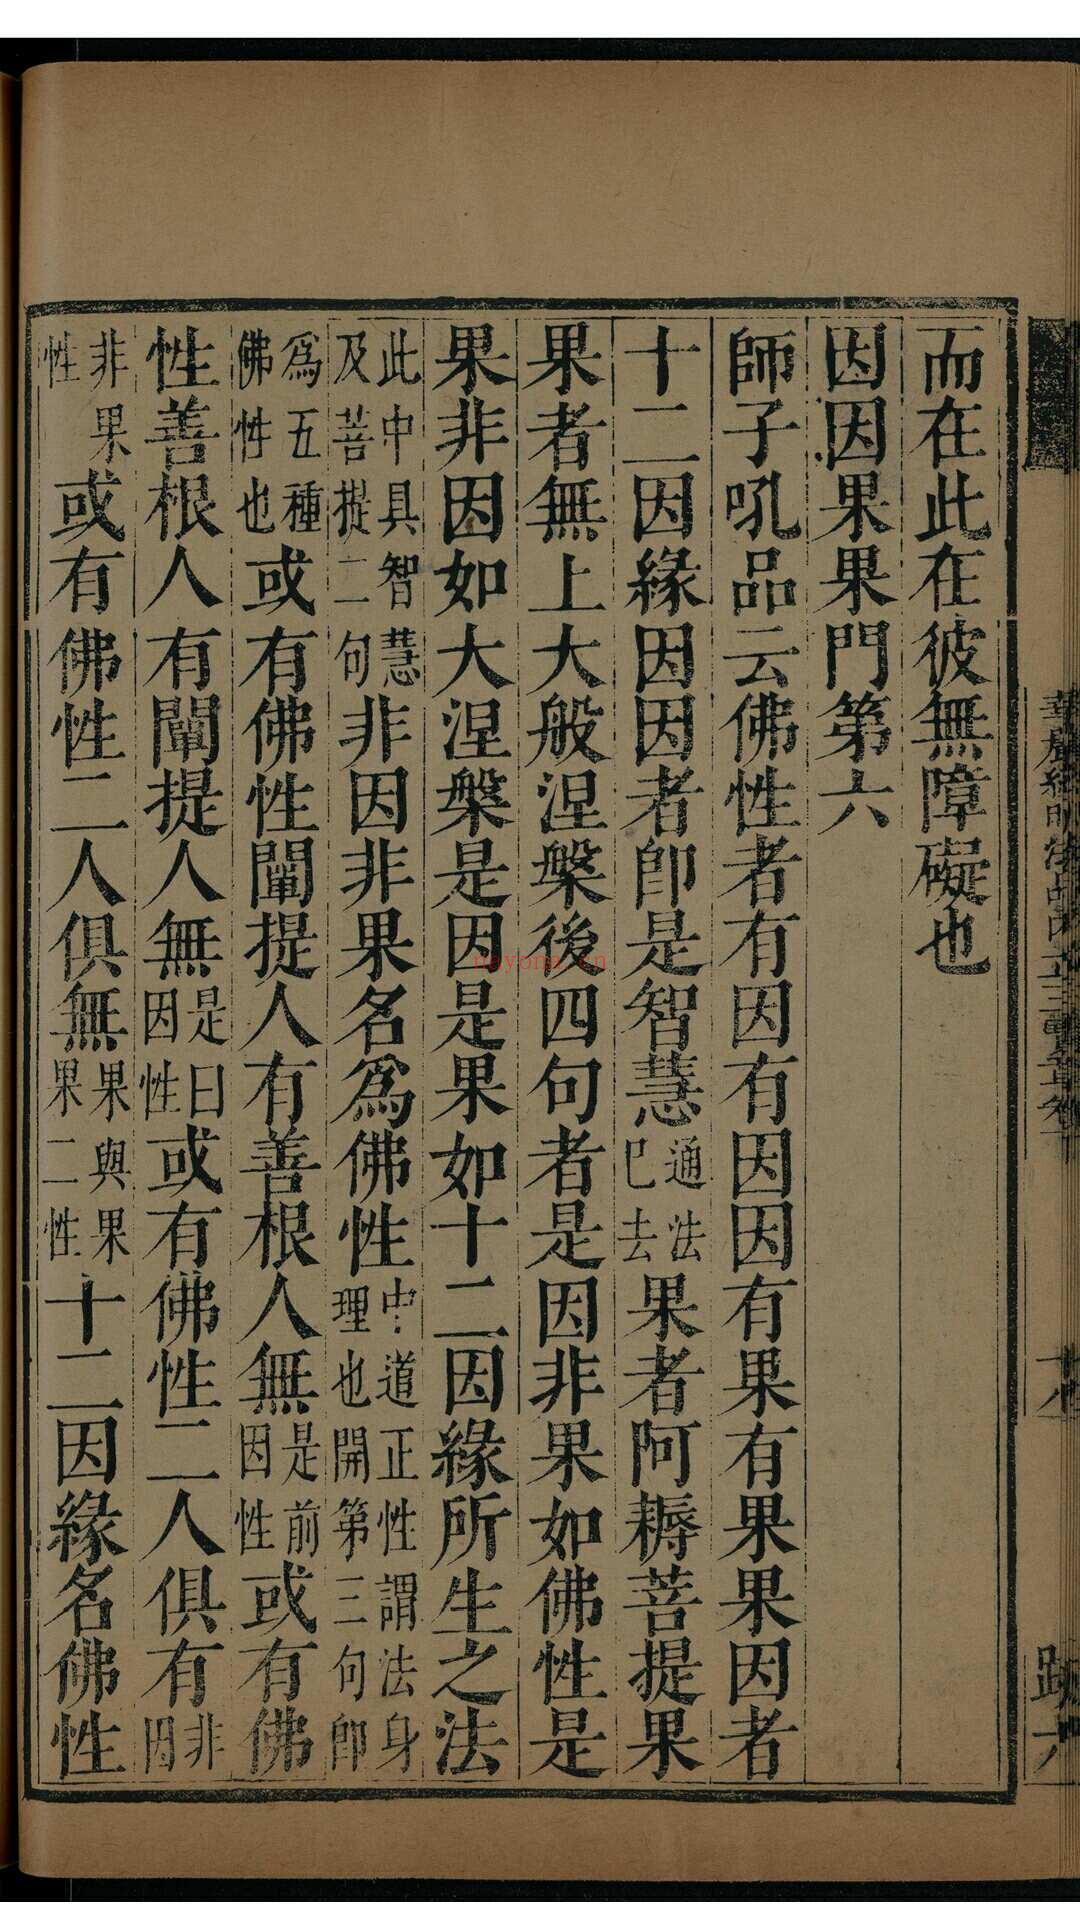 而在此在彼無障礙也
因因果果門第六
師子吼品云佛性者有因有因因有果有果果因者
十二因緣因因者即是智慧通法已去果者阿耨菩提果
果者無上大般涅槃後四句者是因非果如佛性是
果非因如大涅槃是因是果如十二因緣所生之法
此中具智慧及菩提二句非因非果名爲佛性中道正性謂法身理也開第三句即
爲五種佛性也或有佛性闡提人有善根人無是前因性或有佛
性善根人有闡提人無是曰因性或有佛性二人俱有非因
非果性或有佛性二人俱無果與果果二性十二因緣名佛性